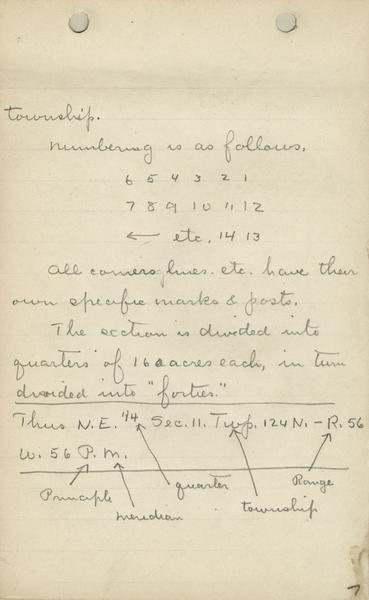 township.
Numbering is as follows.
6 5 4 3 2 1
7 8 9 10 11 12
← etc. 14 13
All corners, lines. etc. have their
own specific marks & posts.
The section is divided into
quarters of 160 acres each, in turn
divided into "forties."
Thus N.E. 1/4 Sec. 11. Twp. 124 N. – R. 56
W. 56 P. M.
Principle meridian quarter township Range
7